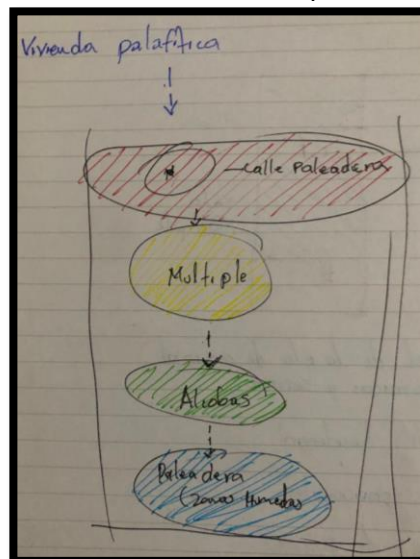 Vivienda palafítica
calle Paleadera
Multiple
Alcobas
Paleadera
(zonas Humedas